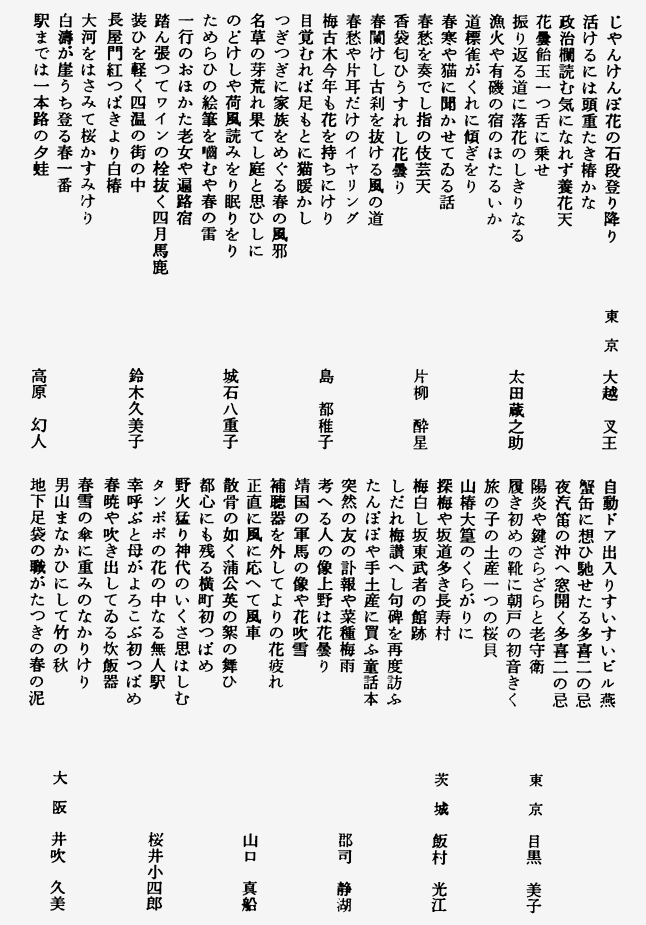 じゃんけんぽ花の石段登り降り
活けるには頭重たき椿かな
政治欄読む気になれず養花天
花曇飴玉一つ舌に乗せ
東京 大越 叉王
振り返る道に落花のしきりなる
漁火や有磯の宿のほたるいか
道標雀がくれに傾ぎをり
春寒や猫に聞かせてゐる話
太田蔵之助
春愁を奏でし指の伎芸天
香袋匂ひうすれし花曇り
春闌けし古刹を抜ける風の道
春愁や片耳だけのイヤリング
片柳 酔星
梅古木今年も花を持ちにけり
目覚むれば足もとに猫暖かし
つぎつぎに家族をめぐる春の風邪
名草の芽荒れ果てし庭と思ひしに
島 都稚子
のどけしや荷風読みをり眠りをり
ためらひの絵筆を嚙むや春の雷
一行のおほかた老女や遍路宿
踏ん張つてワインの栓抜く四月馬鹿
城石八重子
装ひを軽く四温の街の中
長屋門紅つばきより白椿
大河をはさみて桜かすみけり
白濤が崖うち登る春一番
鈴木久美子
駅までは一本路の夕蛙
高原 幻人
自動ドア出入りすいすいビル燕
蟹缶に想ひ馳せたる多喜二の忌
夜汽笛の沖へ窓開く多喜二の忌
陽炎や鍵ざらざらと老守衛
東京 目黒 美子
履き初めの靴に朝戸の初音きく
旅の子の土産一つの桜貝
山椿大篁のくらがりに
探梅や坂道多き長寿村
茨城 飯村 光江
梅白し坂東武者の館跡
しだれ梅讃へし句碑を再度訪ふ
たんぽぽや手土産に買ふ童話本
突然の友の訃報や菜種梅雨
郡司 静湖
考へる人の像上野は花曇り
靖国の軍馬の像や花吹雪
補聴器を外してよりの花疲れ
正直に風に応へて風車
山口 真船
散骨の如く蒲公英の絮の舞ひ
都心にも残る横町初つばめ
野火猛り神代のいくさ思はしむ
タンポポの花の中なる無人駅
桜井小四郎
幸呼ぶと母がよろこぶ初つばめ
春暁や吹き出してゐる炊飯器
春雪の傘に重みのなかりけり
男山まなかひにして竹の秋
大阪 井吹 久美
地下足袋の職がたつきの春の泥